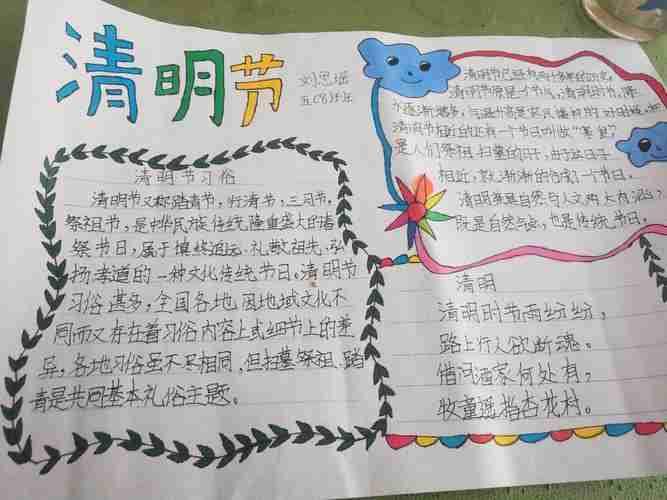 清明节
刘思瑶
五(8)班
清明节习俗
清明节又称踏青节,行清节,三月节,
祭祖节,是中华民族传统隆重盛大的春
祭节日,属于慎终追远、礼敬祖先、弘
扬孝道的一种文化传统节日,清明节
习俗甚多,全国各地因地域文化不
同而又存在着习俗内容上或细节上的差
异,各地习俗虽不尽相同,但扫墓祭祖、踏
青是共同基本礼俗主题。
清明节已经有两千多年的历史,
清明节原是一个节气,清明时节,
气温升高是农民播种的好时候,
清明节相近的还有一个节日叫做“寒食”
是人们祭祖扫墓的日子,由于这日子
相近,就渐渐的合成一个节日。
清明兼具自然与人文两大内涵,
既是自然节气,也是传统节日。
清明
清明时节雨纷纷,
路上行人欲断魂。
借问酒家何处有,
牧童遥指杏花村。